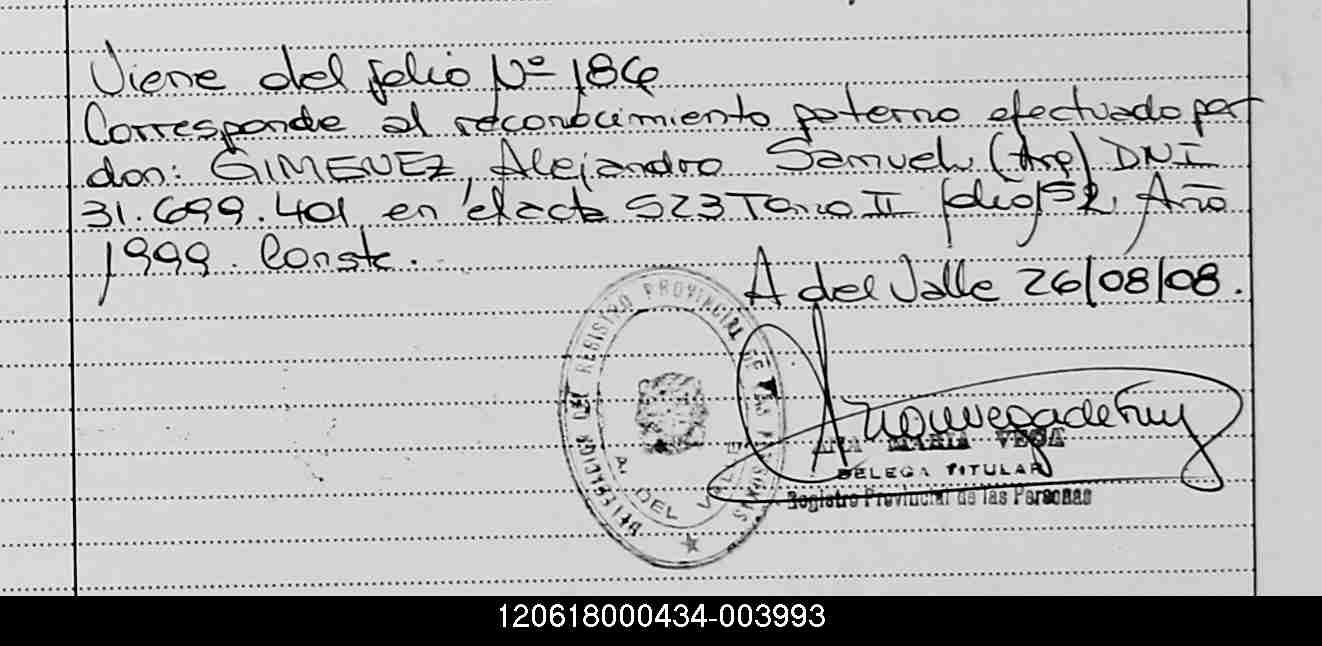 Viene del folio Nº 186
Corresponde al reconocimiento paterno efectuado por
don: GIMENEZ, Alejandro Samuel. (Arg) DNI
31.699.401 en el acta 523 Tomo II folio 152, Año
1999. Conste.
A del Valle 26/08/08.
DELEGACION DEL REGISTRO PROVINCIAL DE LAS PERSONAS
A. DEL VALLE
ANA MARIA VEGA
DELEGA TITULAR
Registro Provincial de las Personas
120618000434-003993